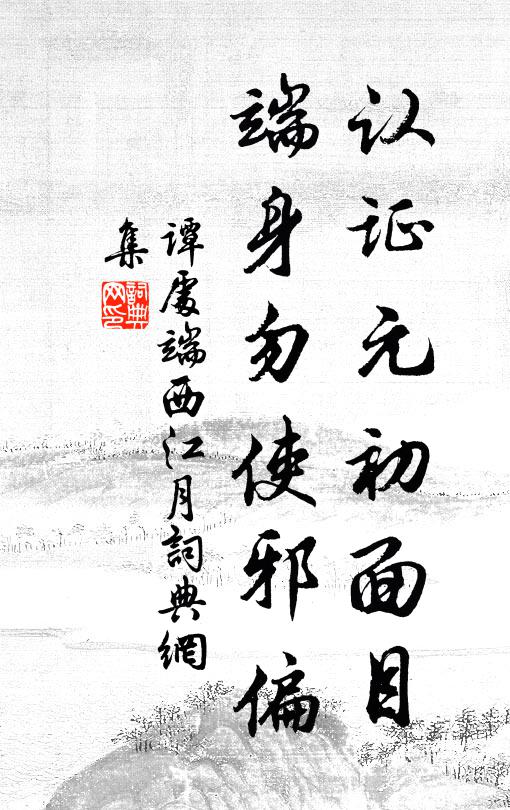 认证元初面目
端身勿使邪偏
谭处端西江月詞典網
集
詞典网印